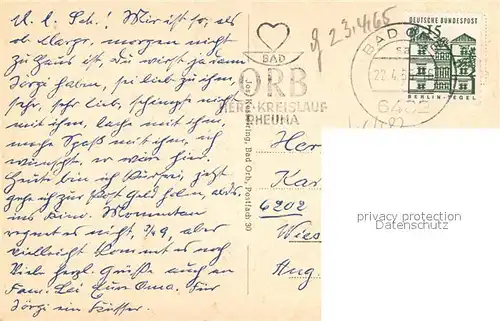 l. Seb.! Mir ist so, als
ob Margr. morgen nicht
zu Haus ist, du wirst ja dann
Jörgi haben, sei lieb zu ihm,
sehr, sehr lieb, schimpf nicht
mit ihm, lache mit ihm,
mache Spaß mit ihm, ich
wünscht, er wär hier.
Heute bin ich kurfrei, jetzt
gehe ich zur Post Geld holen, abds.
ins Kino. Momentan
regnet es nicht, aber
vielleicht kommt es noch
Viele herzl. Grüße auch an
Fam. Lei Eure Oma. Für
Jörgi ein Küsser.
23.4.65
BAD
ORB
HERZ-KREISLAUF
RHEUMA
BAD ORB
22.4.65
6482
DEUTSCHE BUNDESPOST
15
BERLIN-TEGEL
Bad Orb, Postfach 30
Her
Kar
6202
Wies
Aug.
privacy protection
Datenschutz